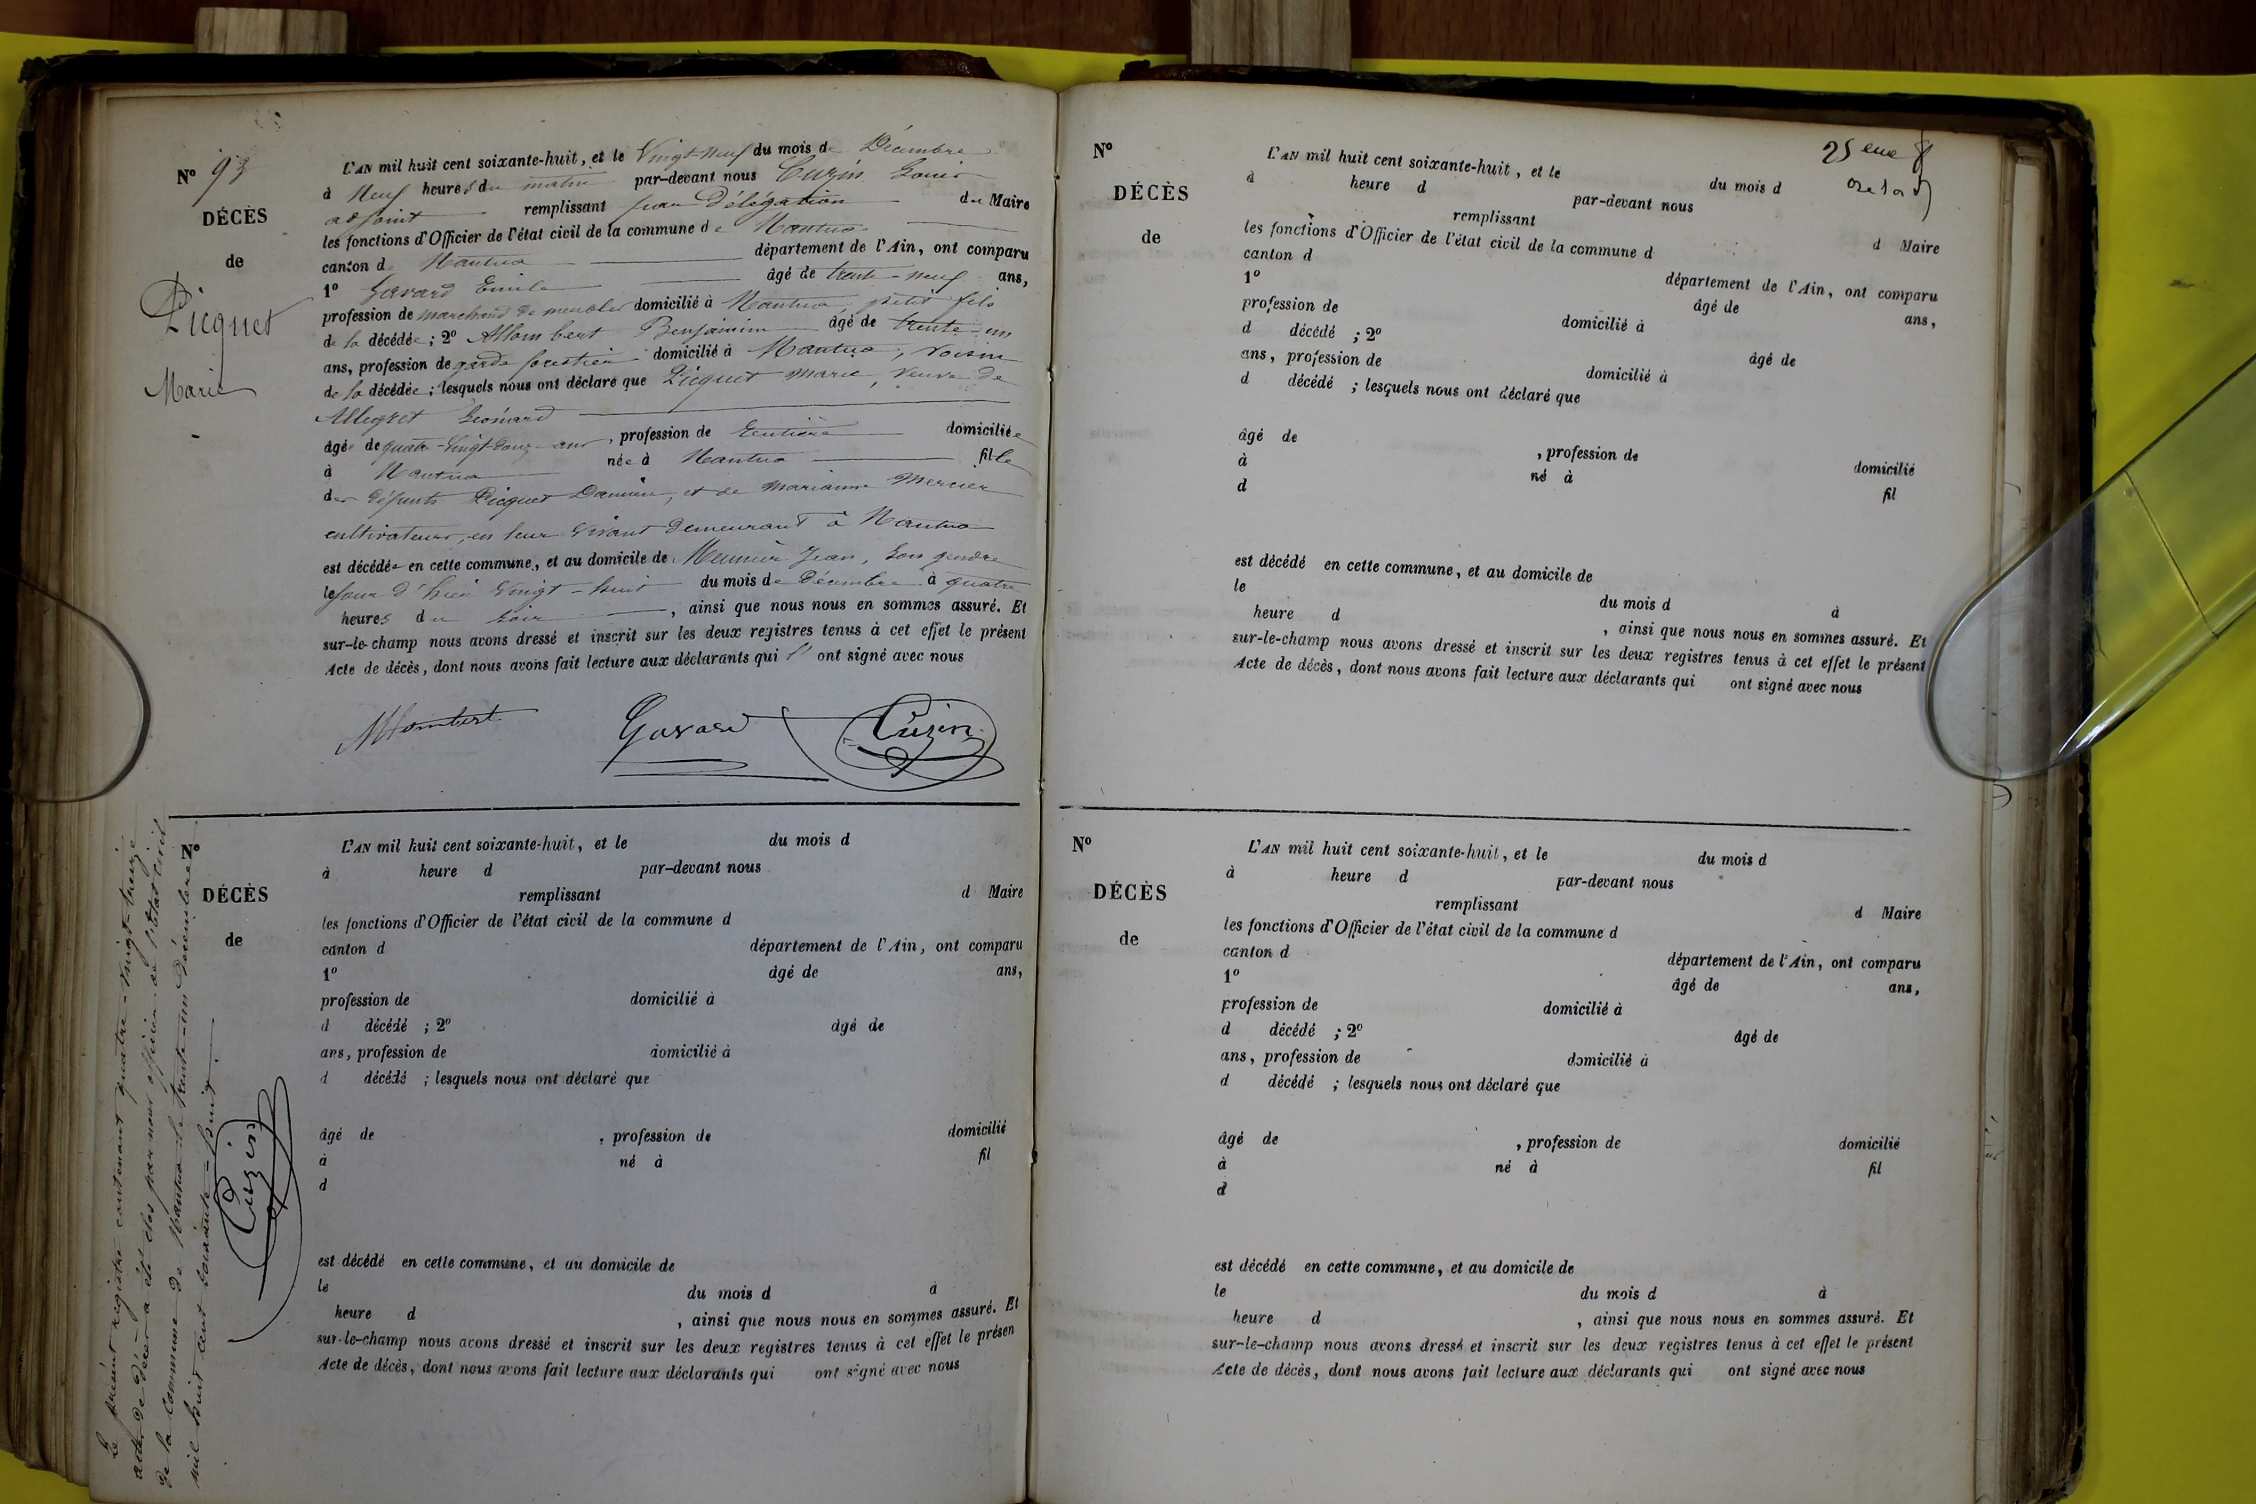 N° 93
DÉCÈS
de
Picquet
Marie
L'AN mil huit cent soixante-huit, et le Vingt-neuf du mois de Décembre
à Neuf heures du matin par-devant nous Cuzin Louis
adjoint remplissant par Délégation du Maire
les fonctions d'Officier de l'état civil de la commune de Nantua
canton de Nantua département de l'Ain, ont comparu
1° Gavard Emile âgé de trente-neuf ans,
profession de marchand de meubles domicilié à Nantua petit fils
de la décédée ; 2° Allombert Benjamin âgé de trente-un
ans, profession de garde forestier domicilié à Nantua, voisin
de la décédée ; lesquels nous ont déclaré que Picquet Marie, Veuve de
Allegret Léonard
âgée de quatre-Vingt-Douze ans, profession de Rentière domiciliée
à Nantua née à Nantua fille
des défunts Picquet Damien, et de Marianne Mercier
cultivateurs, en leur vivant demeurant à Nantua
est décédée en cette commune, et au domicile de Meunier Jean, son gendre
le jour d'hier Vingt-huit du mois de Décembre à quatre
heures du soir, ainsi que nous nous en sommes assuré. Et
sur-le-champ nous avons dressé et inscrit sur les deux registres tenus à cet effet le présent
Acte de décès, dont nous avons fait lecture aux déclarants qui ont signé avec nous
Allombert Gavard Cuzin
N°
DÉCÈS
de
L'AN mil huit cent soixante-huit, et le du mois d
à heure d par-devant nous
remplissant d Maire
les fonctions d'Officier de l'état civil de la commune d
canton d département de l'Ain, ont comparu
1° âgé de ans,
profession de domicilié à
d décédé ; 2° âgé de
ans, profession de domicilié à
d décédé ; lesquels nous ont déclaré que
âgé de , profession de domicilié
à né à fil
d
est décédé en cette commune, et au domicile de
le du mois d à
heure d , ainsi que nous nous en sommes assuré. Et
sur-le-champ nous avons dressé et inscrit sur les deux registres tenus à cet effet le présen
Acte de décès, dont nous avons fait lecture aux déclarants qui ont signé avec nous
Le présent registre contenant quatre-Vingt-treize
actes de Décès a été clos par nous officier de l'état civil
de la commune de Nantua le trente-un décembre
mil huit cent soixante-huit.
Cuzin
25 eme
N°
DÉCÈS
de
L'AN mil huit cent soixante-huit, et le du mois d
à heure d par-devant nous
remplissant d Maire
les fonctions d'Officier de l'état civil de la commune d
canton d département de l'Ain, ont comparu
1° âgé de ans,
profession de domicilié à
d décédé ; 2° âgé de
ans, profession de domicilié à
d décédé ; lesquels nous ont déclaré que
âgé de , profession de domicilié
à né à fil
d
est décédé en cette commune, et au domicile de
le du mois d à
heure d , ainsi que nous nous en sommes assuré. Et
sur-le-champ nous avons dressé et inscrit sur les deux registres tenus à cet effet le présent
Acte de décès, dont nous avons fait lecture aux déclarants qui ont signé avec nous
N°
DÉCÈS
de
L'AN mil huit cent soixante-huit, et le du mois d
à heure d par-devant nous
remplissant d Maire
les fonctions d'Officier de l'état civil de la commune d
canton d département de l'Ain, ont comparu
1° âgé de ans,
profession de domicilié à
d décédé ; 2° âgé de
ans, profession de domicilié à
d décédé ; lesquels nous ont déclaré que
âgé de , profession de domicilié
à né à fil
d
est décédé en cette commune, et au domicile de
le du mois d à
heure d , ainsi que nous nous en sommes assuré. Et
sur-le-champ nous avons dressé et inscrit sur les deux registres tenus à cet effet le présent
Acte de décès, dont nous avons fait lecture aux déclarants qui ont signé avec nous